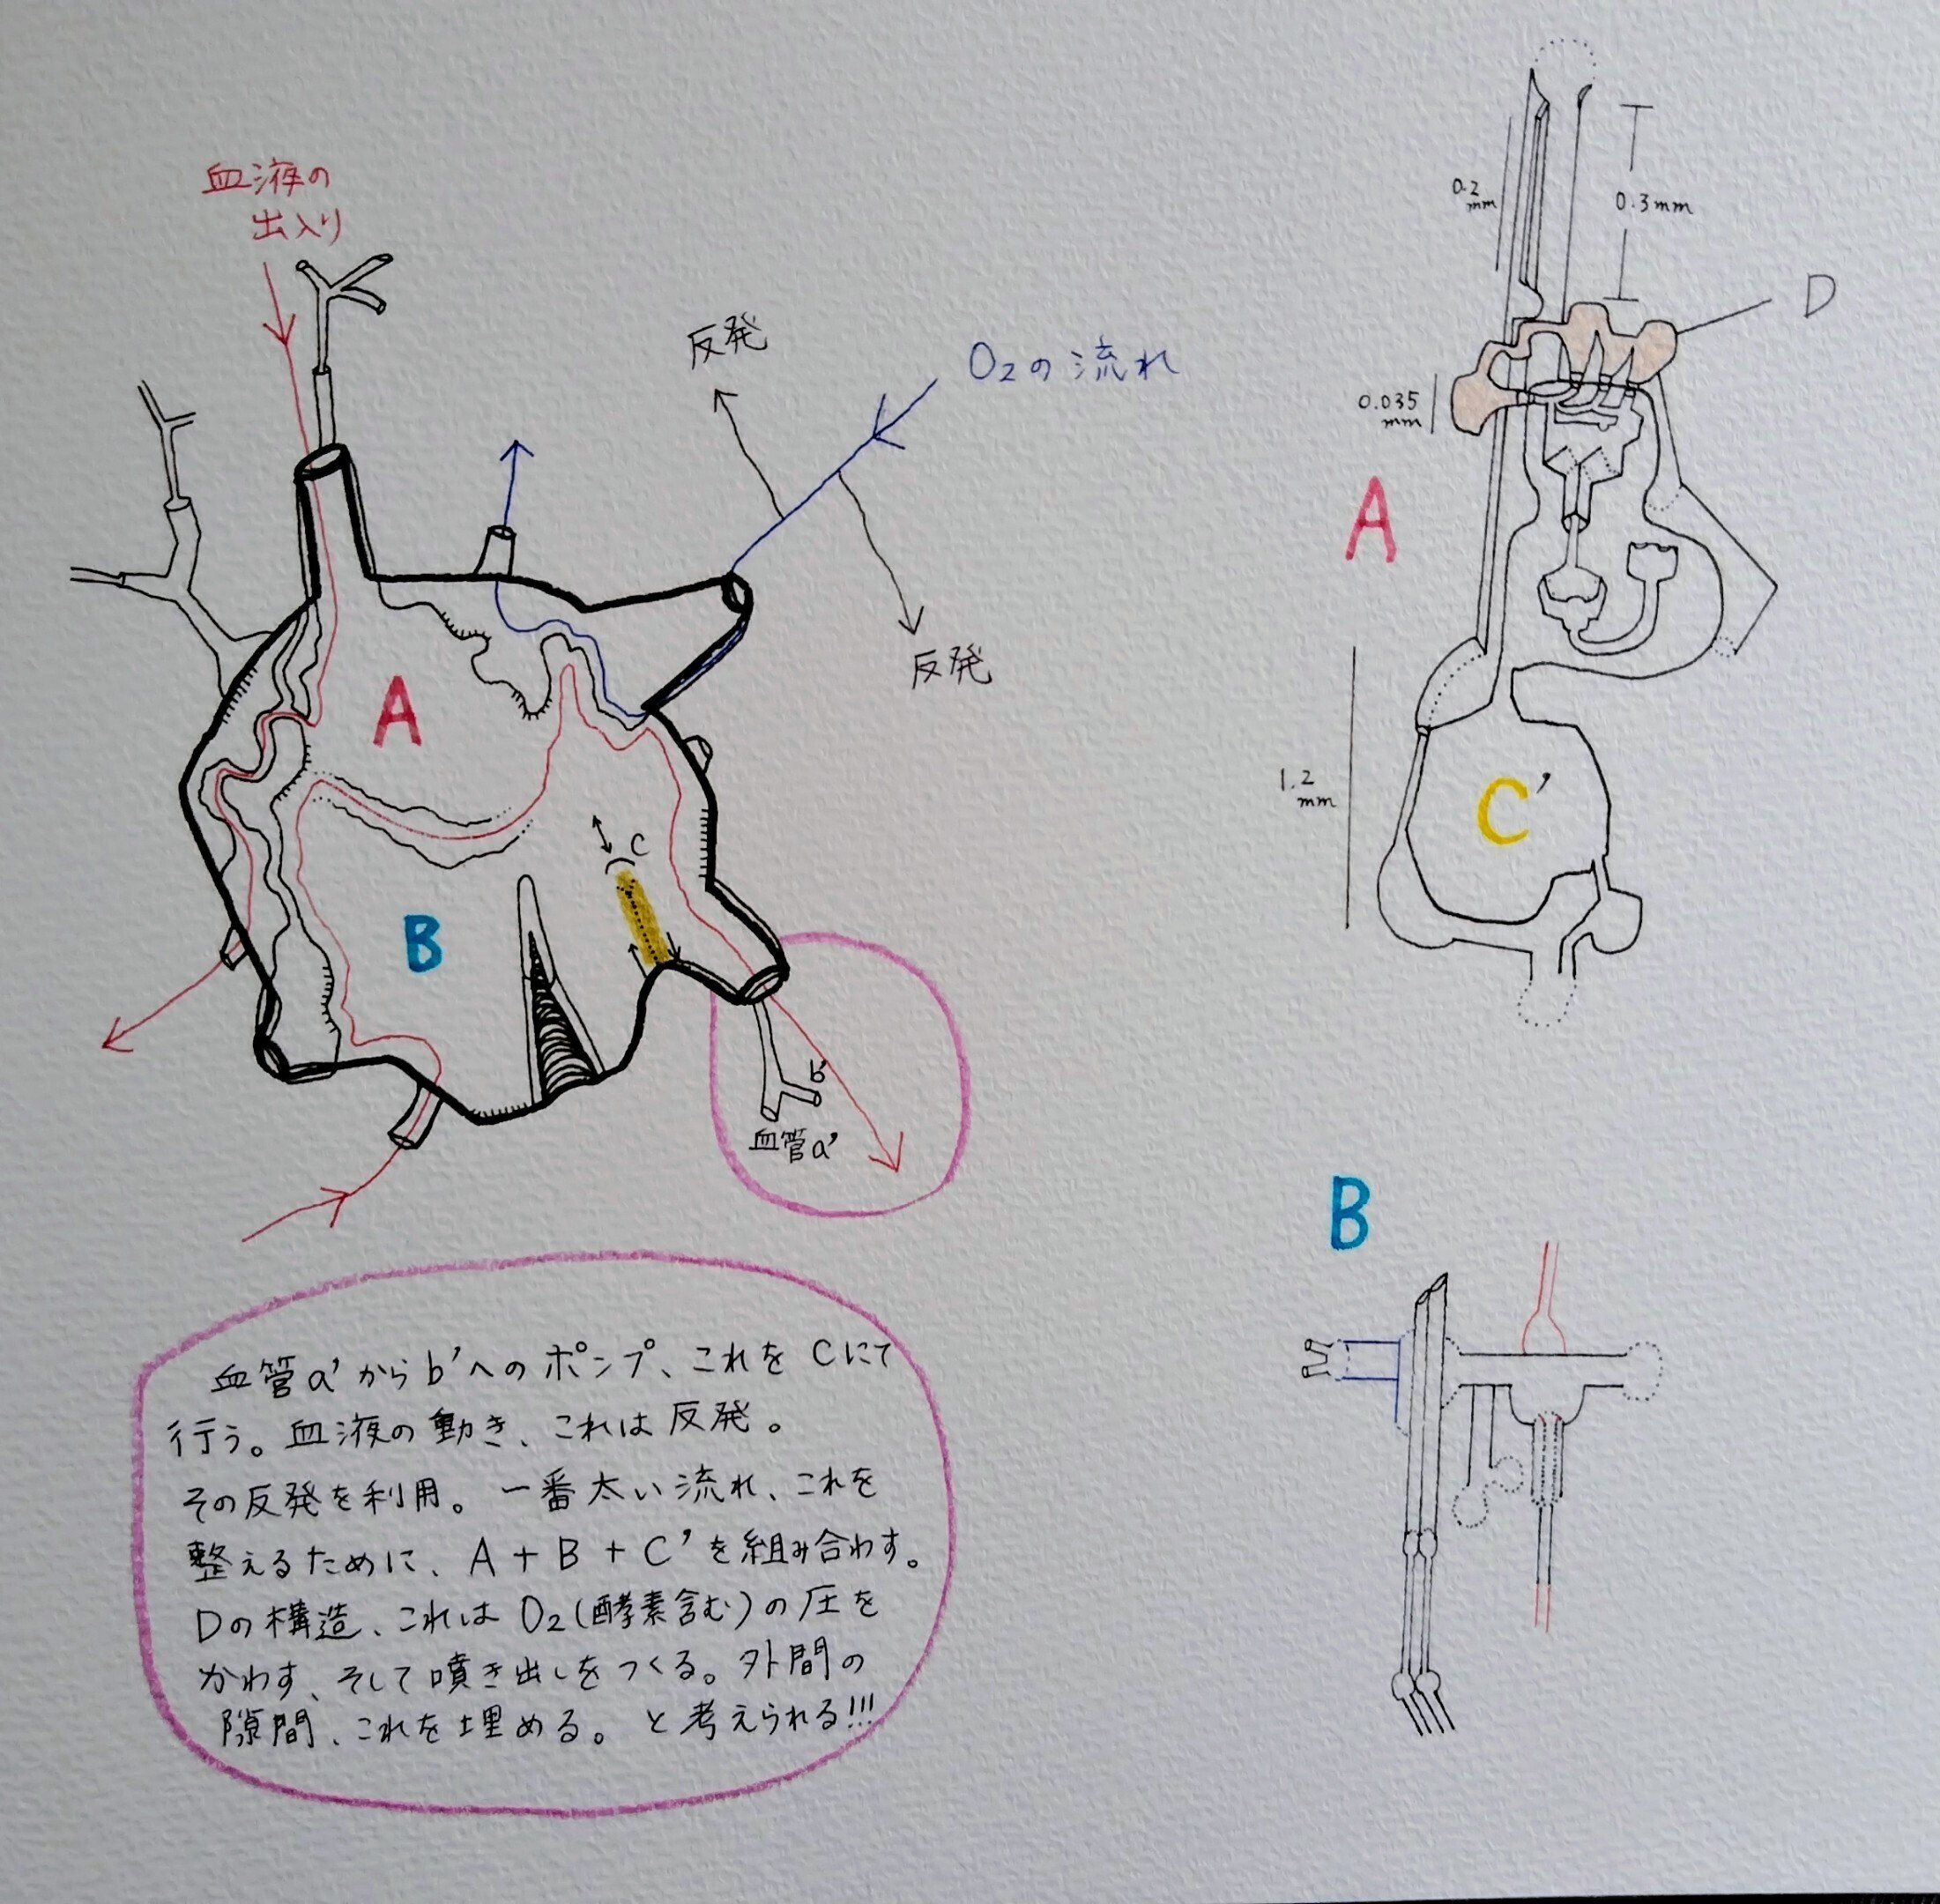 血液の
出入り
反発
O₂の流れ
反発
A
B
C
b'
血管a'
血管a'からb'へのポンプ、これをCにて
行う。血液の動き、これは反発。
その反発を利用。一番太い流れ、これを
整えるために、A+B+C'を組み合わす。
Dの構造、これはO₂(酵素含む)の圧を
かわす、そして噴き出しをつくる。外間の
隙間、これを埋める。と考えられる!!!
0.2
mm
0.3mm
D
0.035
mm
A
1.2
mm
C'
B